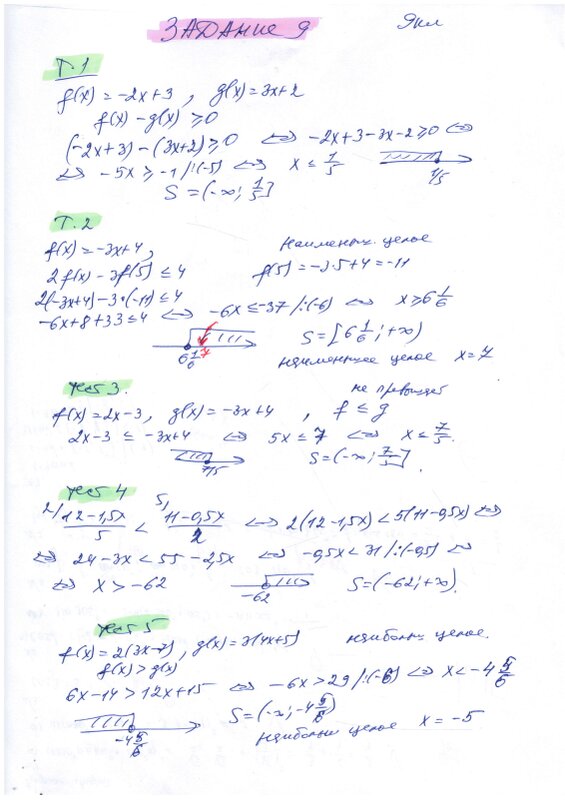 ЗАДАНИЕ 9
9 кл
Т.1
f(x) = -2x+3 , g(x) = 3x+2
f(x) - g(x) ≥ 0
(-2x+3) - (3x+2) ≥ 0 ⇔ -2x+3-3x-2 ≥ 0 ⇔
⇔ -5x ≥ -1 /:(-5) ⇔ x ≤ 1/5
1/5
S = (-∞; 1/5]
Т.2
f(x) = -3x+4,
Наименьш. целое
2f(x) - 3f(5) ≤ 4 f(5) = -3·5+4 = -11
2(-3x+4) - 3·(-11) ≤ 4
-6x+8+33 ≤ 4 ⇔ -6x ≤ -37 /:(-6) ⇔ x ≥ 6 1/6
6 1/6 7
S = [6 1/6; +∞)
наименьшее целое x = 7
Тест 3.
не превышает
f(x) = 2x-3, g(x) = -3x+4 , f ≤ g
2x-3 ≤ -3x+4 ⇔ 5x ≤ 7 ⇔ x ≤ 7/5.
7/5
S = (-∞; 7/5].
Тест 4
2/ (12-1,5x)/5 < 5/ (11-0,5x)/2 ⇔ 2(12-1,5x) < 5(11-0,5x) ⇔
⇔ 24-3x < 55-2,5x ⇔ -0,5x < 31 /:(-0,5) ⇔
⇔ x > -62
-62
S = (-62; +∞).
Тест 5
f(x) = 2(3x-7), g(x) = 3(4x+5) наибольш целое.
f(x) > g(x)
6x-14 > 12x+15 ⇔ -6x > 29 /:(-6) ⇔ x < -4 5/6
-4 5/6
S = (-∞; -4 5/6)
наибольш целое x = -5